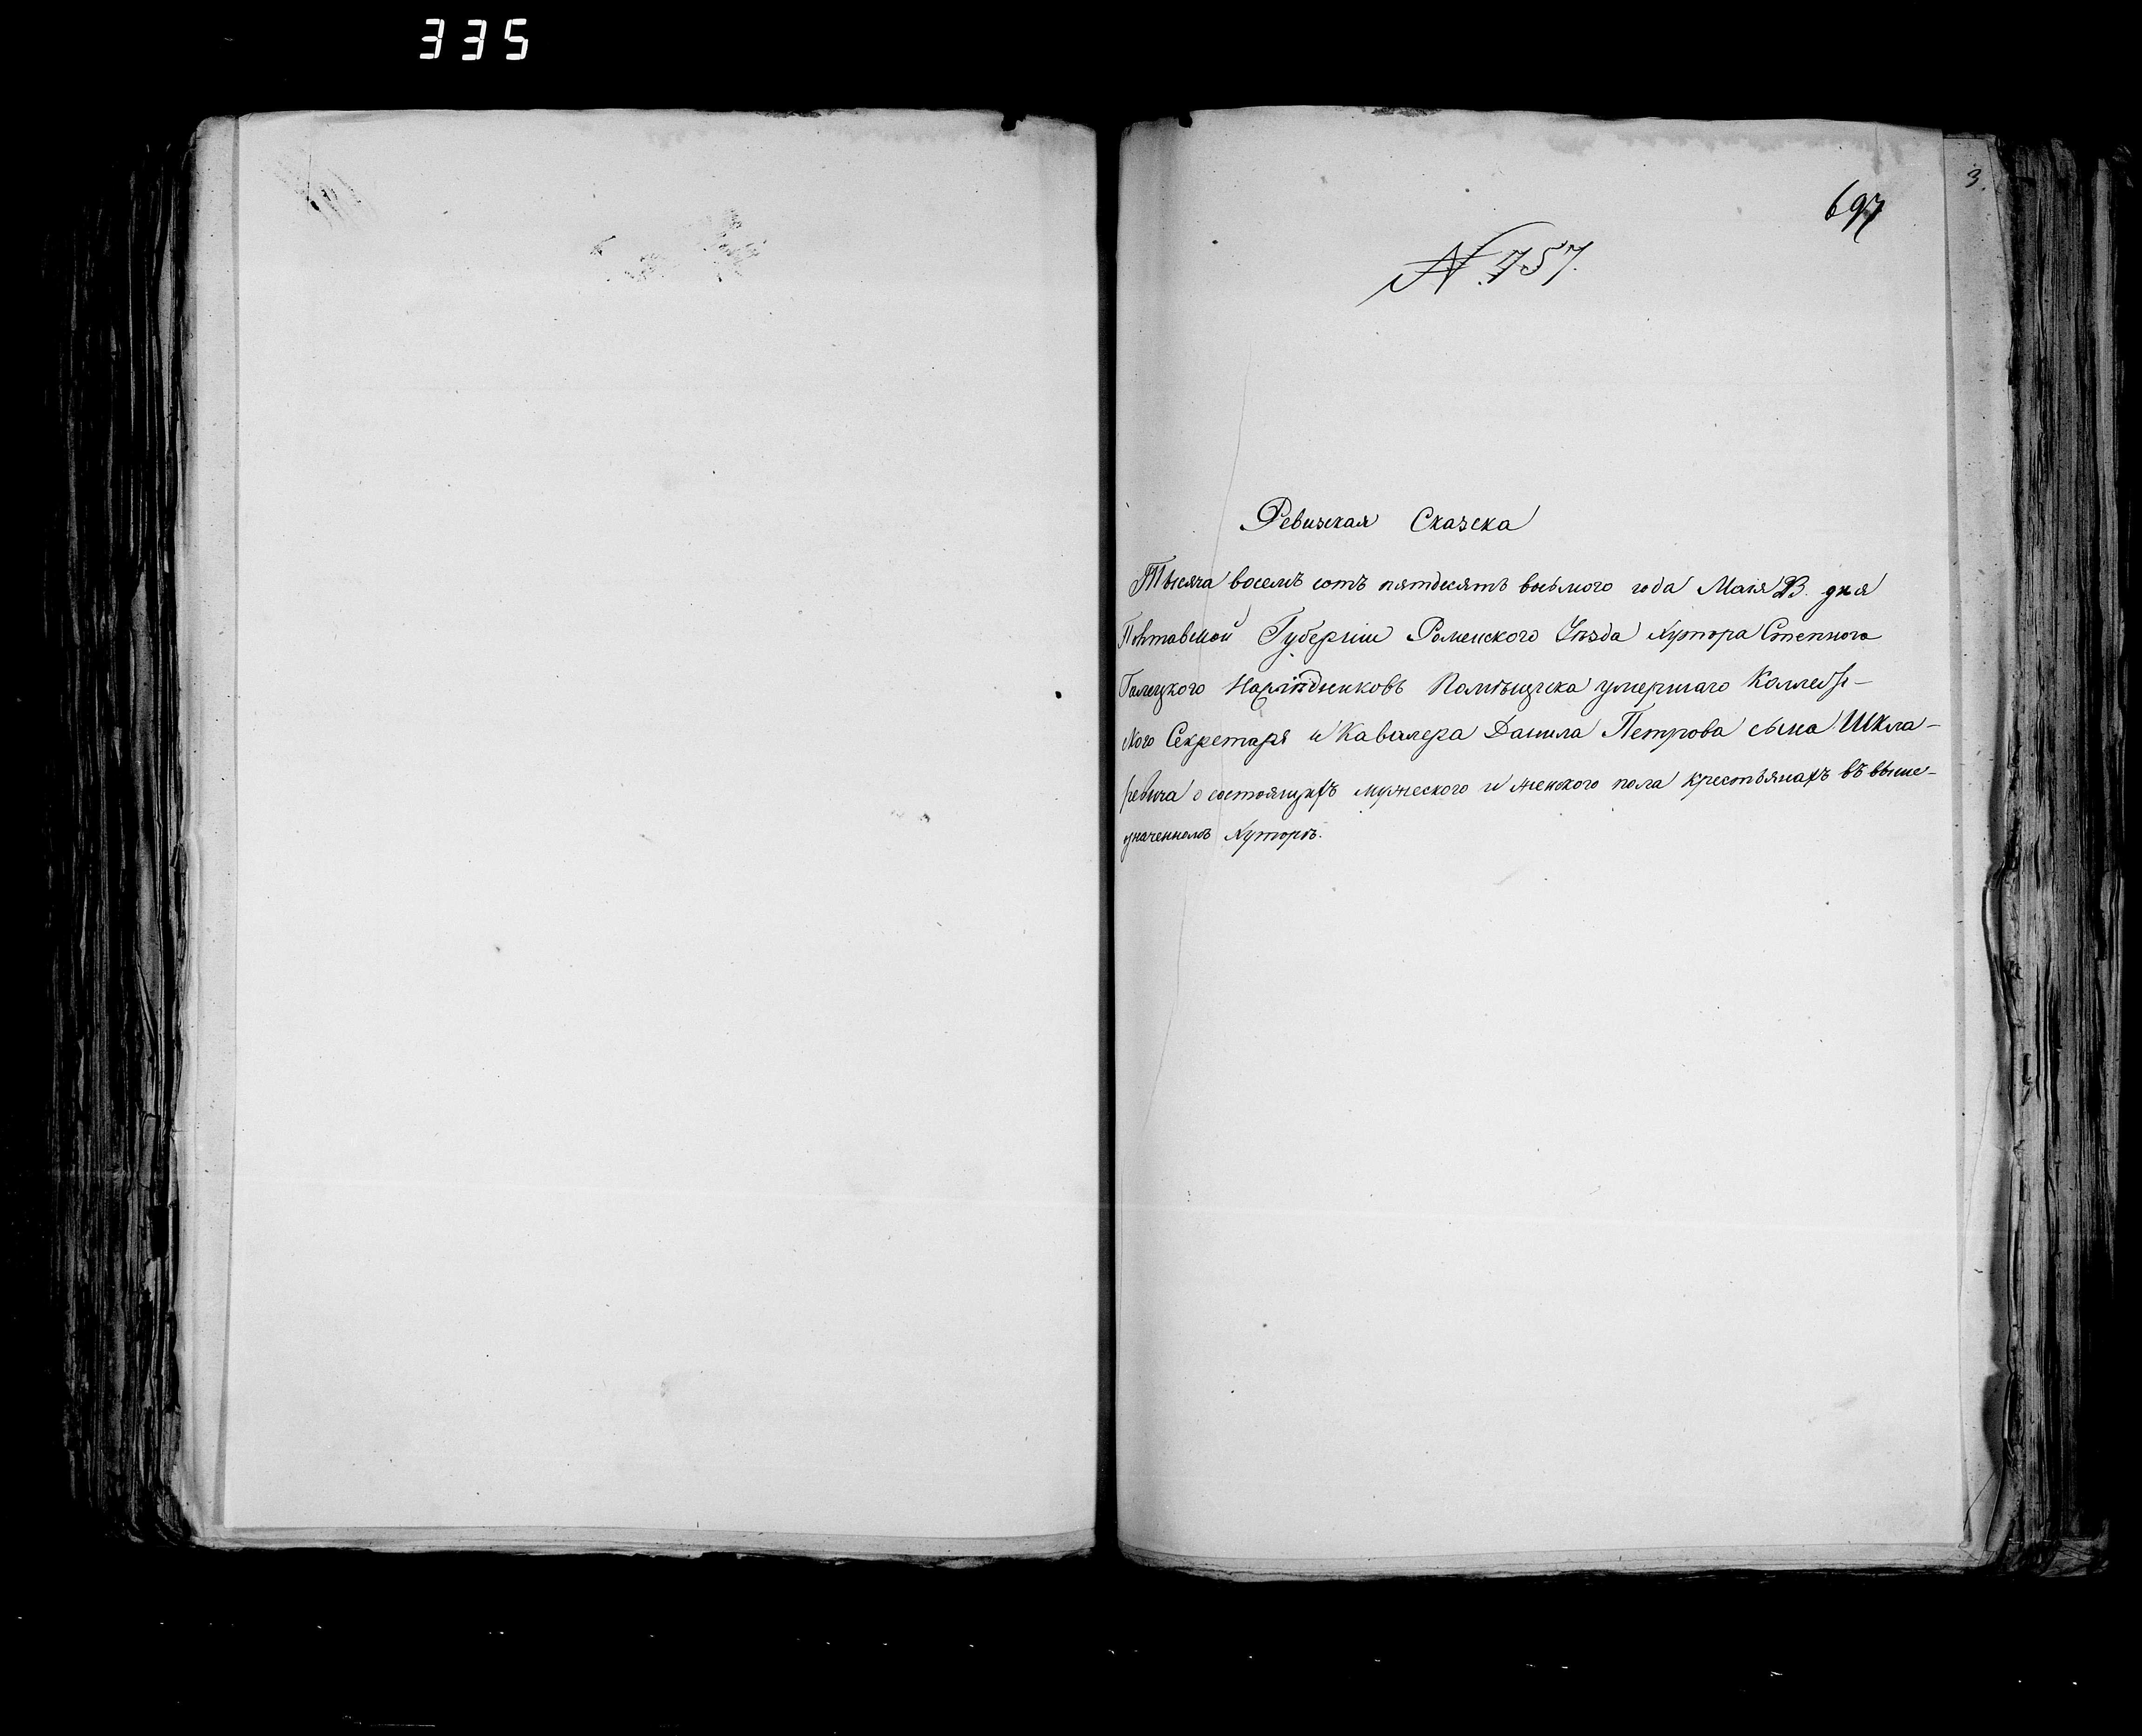 335
3.
697
№ 757.
Ревизская Сказка
Тысяча восемъ сотъ пятдесятъ восьмого года Маія дня
Полтавской Губерніи Роменского Уѣзда Хутора Степного
Галицкого Помѣщика умершаго Коллежс-
кого Секретаря и Кавалера Данила Петрова сына Шкля-
ревича о состоящихъ мужеского и женского пола крестьянахъ въ выше-
означенномъ Хуторѣ.